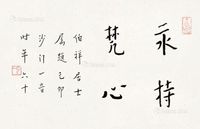 永持
梵心
伯祥居士
屬題己卯
沙門一音
時年六十